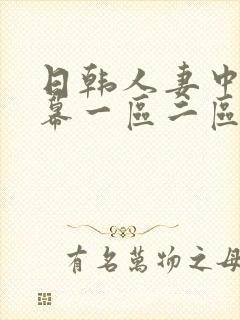 日韩人妻中
幕一區二區
有名萬物之母